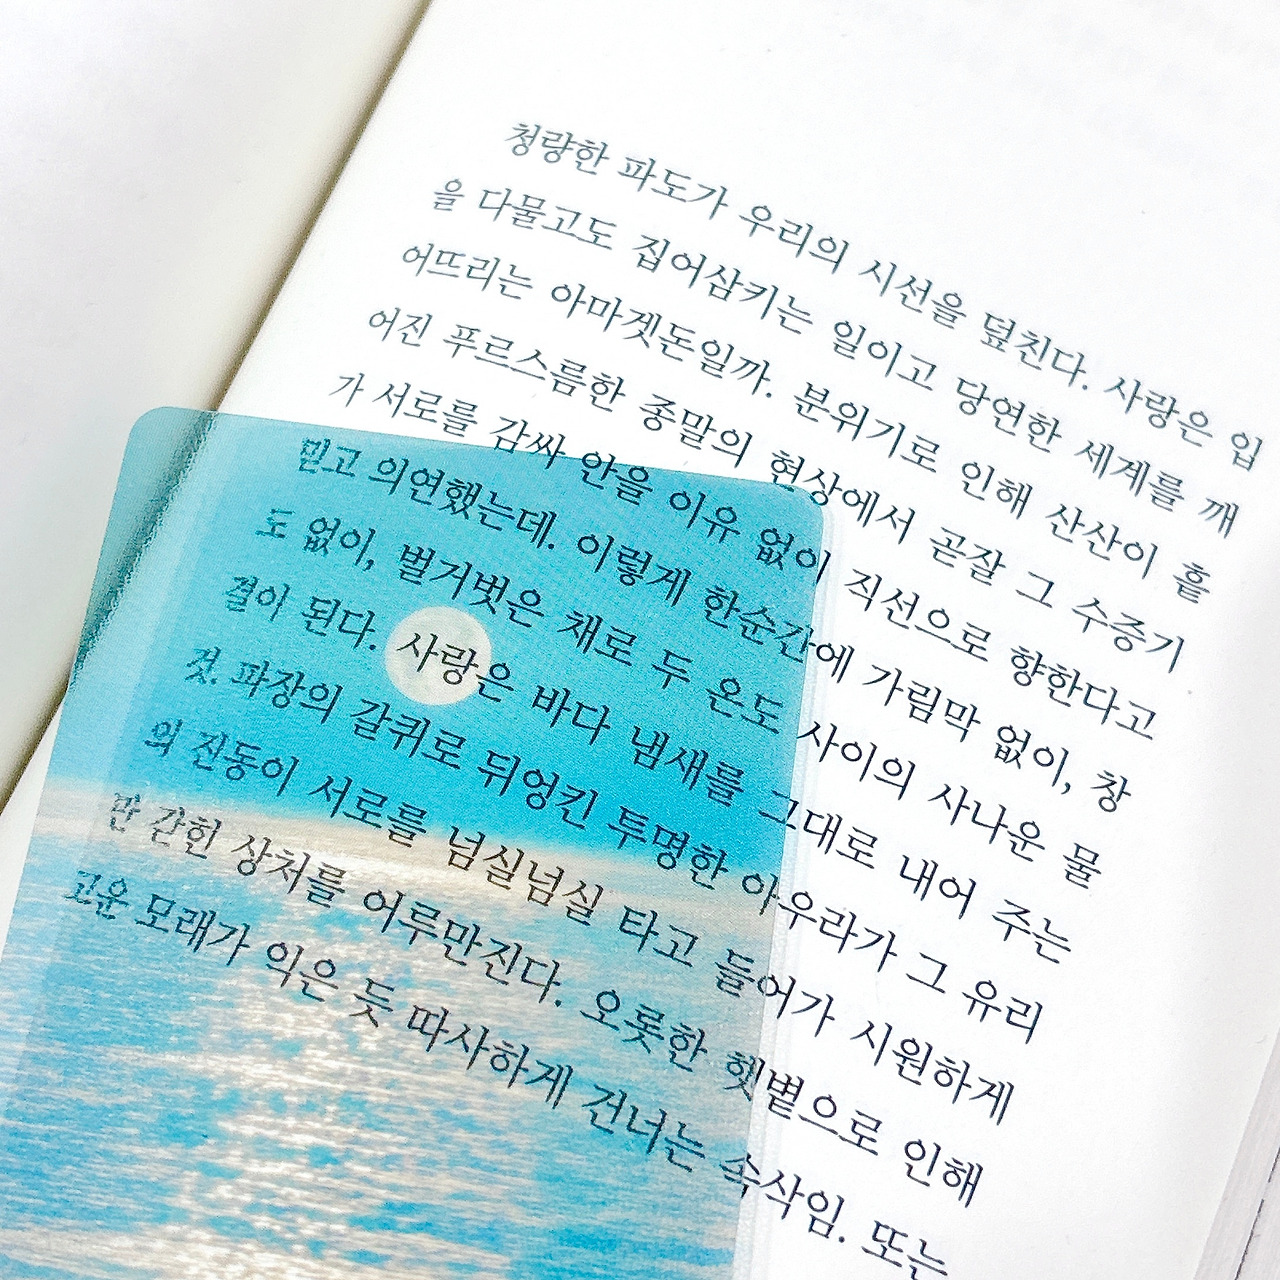 청량한 파도가 우리의 시선을 덮친다. 사랑은 입
을 다물고도 집어삼키는 일이고 당연한 세계를 깨
어뜨리는 아마겟돈일까. 분위기로 인해 산산이 흩
어진 푸르스름한 종말의 현상에서 곧잘 그 수증기
가 서로를 감싸 안을 이유 없이 직선으로 향한다고
믿고 의연했는데. 이렇게 한순간에 가림막 없이, 창
도 없이, 벌거벗은 채로 두 온도 사이의 사나운 물
결이 된다. 사랑은 바다 냄새를 그대로 내어 주는
것. 파장의 갈퀴로 뒤엉킨 투명한 아우라가 그 유리
의 진동이 서로를 넘실넘실 타고 들어가 시원하게
만 갇힌 상처를 어루만진다. 오롯한 햇볕으로 인해
고운 모래가 익은 듯 따사하게 건너는 속삭임. 또는